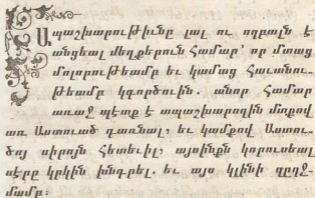 Ապաշխարութիւնը լալ ու ողբալն է
անցեալ մեղքերուն համար՝ որ մտաց
մոլորութեամբ եւ կամաց հաւանու-
թեամբ կգործուին. անոր համար
առաջ պէտք է ապաշխարողին մտքով
առ Աստուած դառնալ, եւ կամքով Աստու-
ծոյ սիրոյն հետեւիլ; այսինքն կորուսեալ
սէրը կրկին խնդրել. եւ այս կլինի զղջ-
մամբ: